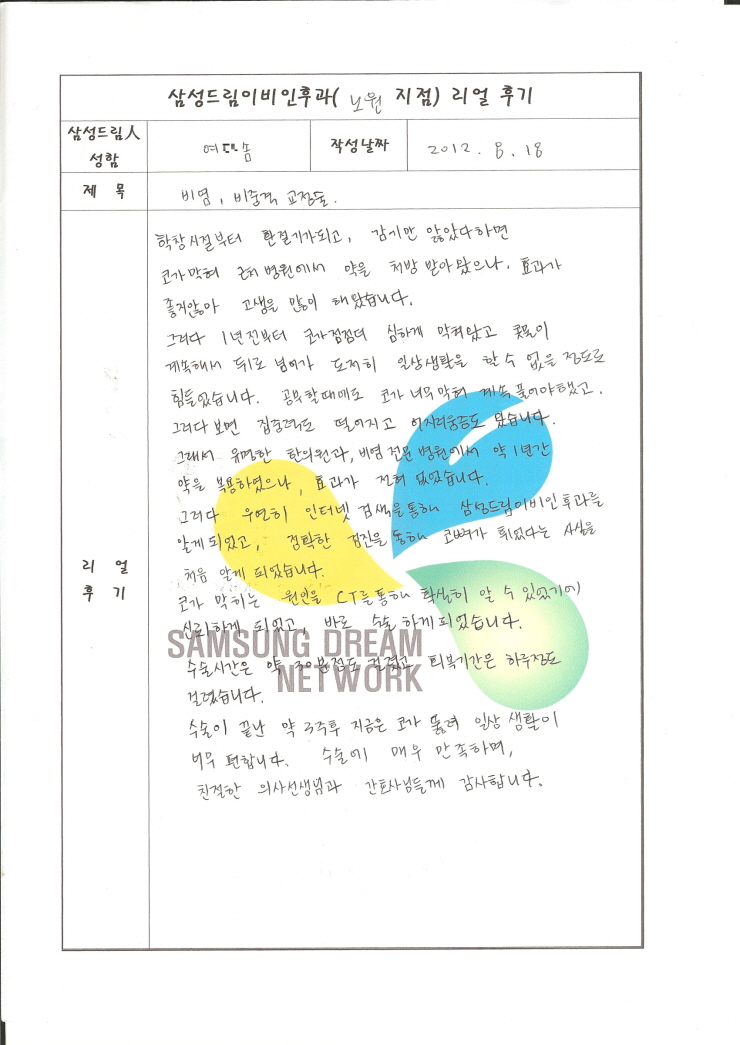 삼성드림이비인후과( 노원 지점) 리얼 후기
삼성드림人
성함
여다솜
작성날짜
2012. 8. 18
제 목
비염, 비중격 교정술.
리 얼
후 기
학창시절부터 환절기가되고, 감기만 앓았다하면
코가막혀 근처병원에서 약을 처방 받아왔으나, 효과가
좋지않아 고생을 많이 해왔습니다.
그러다 1년전부터 코가점점더 심하게 막혀왔고 콧물이
계속해서 뒤로 넘어가 도저히 일상생활을 할 수 없을 정도로
힘들었습니다. 공부할때에도 코가 너무막혀 계속 풀어야했고,
그러다 보면 집중력도 떨어지고 어지러움증도 왔습니다.
그래서 유명한 한의원과, 비염 전문 병원에서 약 1년간
약을 복용하였으나, 효과가 전혀 없었습니다.
그러다 우연히 인터넷 검색을통해 삼성드림이비인후과를
알게되었고, 정확한 검진을 통해 코뼈가 휘었다는 사실을
처음 알게 되었습니다.
코가 막히는 원인을 CT를통해 확실히 알 수 있었기에
신뢰하게 되었고, 바로 수술하게되었습니다.
수술시간은 약 30분정도 걸렸고 회복기간은 하루정도
걸렸습니다.
수술이 끝난 약 3주후 지금은 코가 뚫려 일상 생활이
너무 편합니다. 수술에 매우 만족하며,
친절한 의사선생님과 간호사님들께 감사합니다.
SAMSUNG DREAM
NETWORK